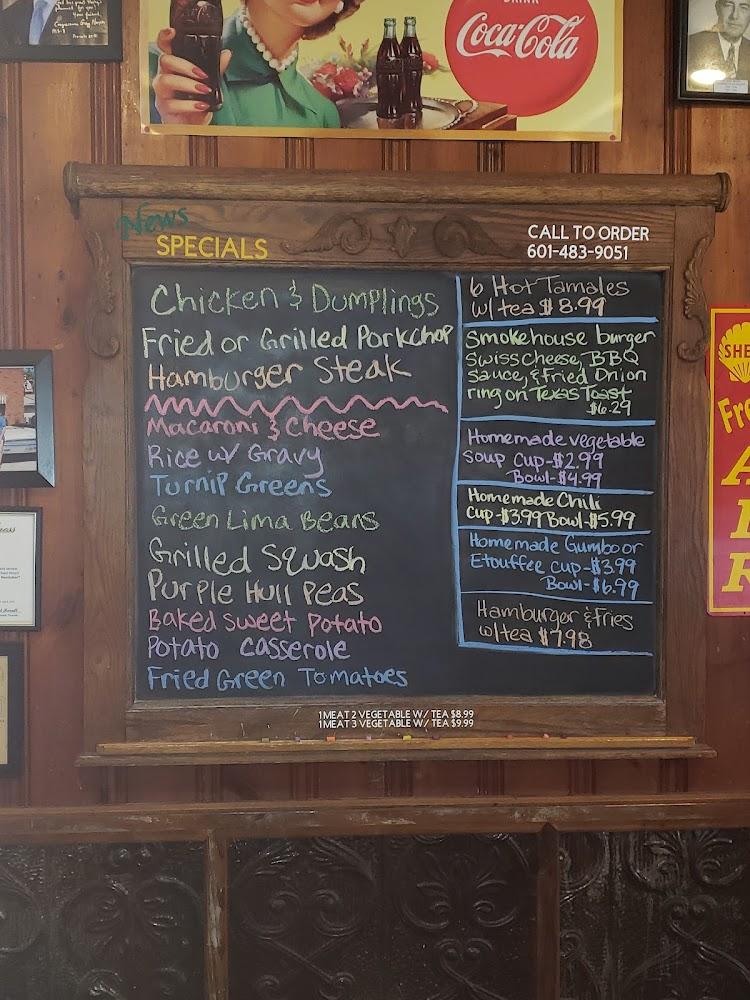 DRINK
Coca-Cola
News
SPECIALS
CALL TO ORDER
601-483-9051
Chicken & Dumplings
Fried or Grilled Porkchop
Hamburger Steak
Macaroni & Cheese
Rice w/ Gravy
Turnip Greens
Green Lima Beans
Grilled Squash
Purple Hull Peas
Baked Sweet Potato
Potato Casserole
Fried Green Tomatoes
6 Hot Tamales
w/ tea $8.99
Smokehouse burger
Swiss Cheese, BBQ
Sauce, & Fried Onion
ring on Texas Toast
$6.29
Homemade vegetable
Soup Cup-$2.99
Bowl-$4.99
Homemade Chili
Cup-$3.99 Bowl-$5.99
Homemade Gumbo or
Etouffee Cup-$3.99
Bowl-$6.99
Hamburger & Fries
w/tea $7.98
1 MEAT 2 VEGETABLE W/ TEA $8.99
1 MEAT 3 VEGETABLE W/ TEA $9.99
SHE
Fre